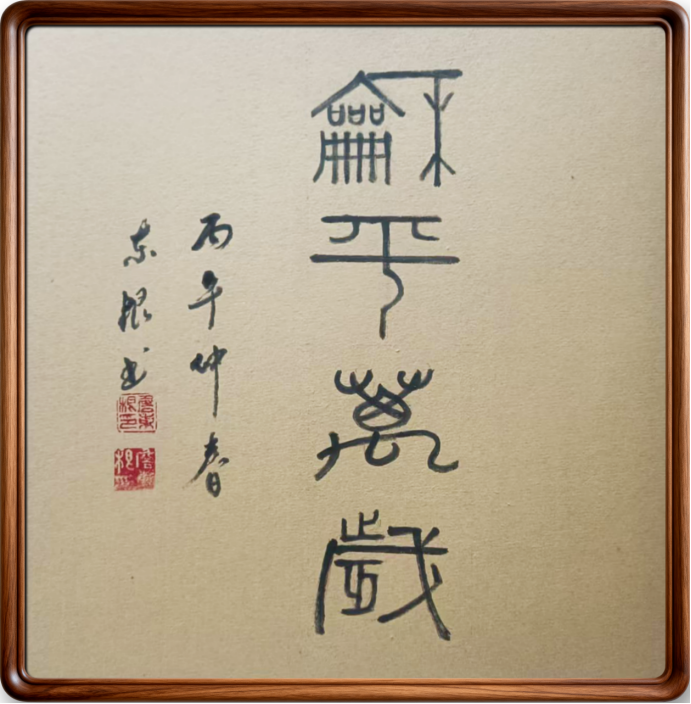 龢平萬歲
丙午仲春
东根书